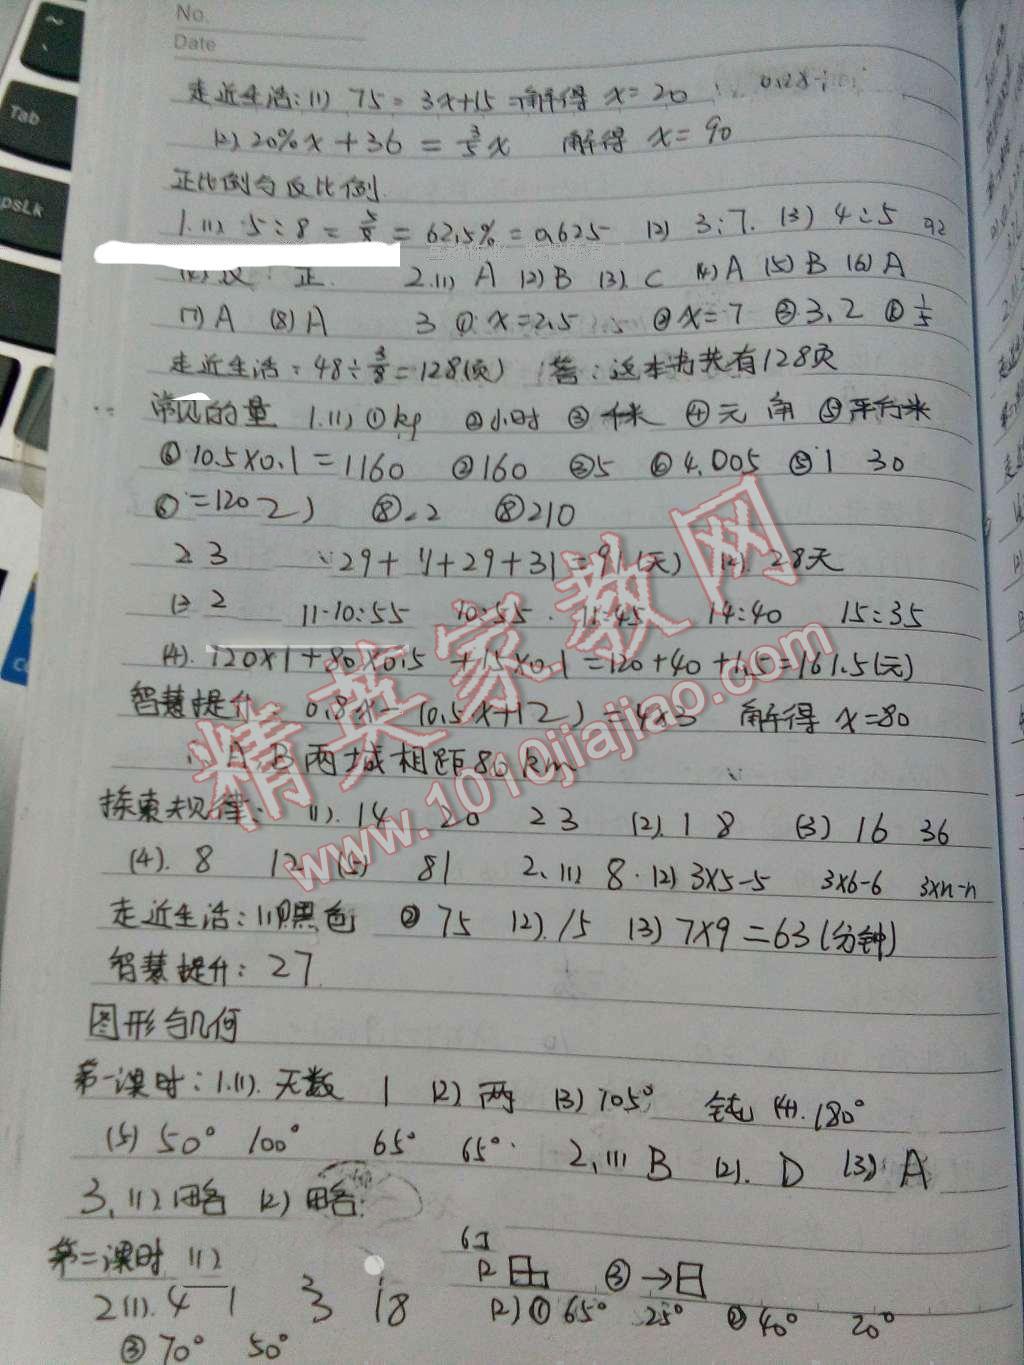 No.
Date
走近生活:(1) 75=3x+15 解得 x=20
(2) 20%x+36=3/5x 解得 x=90
正比例与反比例
1.(1) 5:8=5/8=62.5%=0.625 (2) 3:7. (3) 4:5
反 正. 2.(1) A (2) B (3). C (4) A (5) B (6) A
(7) A (8) A 3 ① x=2.5 ② x=7 ③ 3.2 ④ 1/5
走近生活:48÷3/8=128(页) 答:这本书共有128页
常见的量 1.(1) ① kg ② 小时 ③ 千米 ④ 元 角 ⑤ 平行米
⑥ 10.5×0.1=1160 ② 160 ③ 5 ⑥ 4.005 ⑤ 1 30
=120 2) ⑧.2 ⑧ 210
2 3 29+ +29+31=91(天) (2). 28天
2 11-10:55 10:55 11:45 14:40 15:35
(4). 120×1+80×0.5+15×0.1=120+40+1.5=161.5(元)
智慧提升 0.8x-(0.5x+12)=4×3 解得 x=80
∴A B两城相距80km
探索规律: (1). 14 20 23 (2). 1 8 (3) 16 36
(4). 8 12 (5) 81 2、(1) 8.(2) 3×5-5 3×6-6 3×n-n
走近生活:(1)黑色 ② 75 (2). 15 (3) 7×9=63(分钟)
智慧提升:27
图形与几何
第一课时:1.(1). 无数 1 (2) 两 (3) 105° 钝 (4). 180°
(5) 50° 100° 65° 65°. 2.(1) B (2). D (3) A
3、(1)略 (2) 略.
第二课时 (1)
③→
2(1). 4 1 3 18 (2) ① 65° 25° ② 40° 20°
③ 70° 50°
精英家教网
www.1010jiajiao.com
Tab
psLk